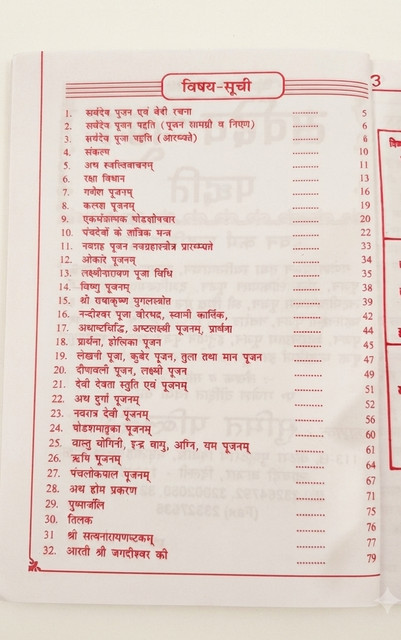 विषय-सूची
1. सर्वदेव पूजन एवं वेदी रचना .......... 5
2. सर्वदेव पूजन पद्दति (पूजन सामग्री व निएण) .......... 6
3. सर्वदेव पूजा पद्दति (आरम्यते) .......... 6
4. संकल्प .......... 10
5. अथ स्वस्तिवाचनम् .......... 11
6. रक्षा विधान .......... 13
7. गणेश पूजनम् .......... 16
8. कलश पूजनम् .......... 19
9. .......... 20
10. पंचदेवों के तांत्रिक मन्त्र .......... 22
11. नवग्रह पूजन नवग्रहास्तोत्र प्रारम्भ्यते .......... 33
12. ओंकारे पूजनम् .......... 34
13. लक्ष्मीनारायण पूजा विधि .......... 35
14. विष्णु पूजनम् .......... 38
15. श्री राधाकृष्ण युगलास्त्रोत .......... 39
16. नन्दीश्वर पूजा वीरभद्र, स्वामी कार्तिक, .......... 42
17. अष्टलक्ष्मी पूजनम्, प्रार्थना .......... 44
18. प्रार्थना, होलिका पूजन .......... 45
19. लेखनी पूजा, कुबेर पूजन, तुला तथा मान पूजन .......... 47
20. दीपावली पूजन, लक्ष्मी पूजन .......... 49
21. देवी देवता स्तुति एवं पूजनम् .......... 51
22. अथ दुर्गा पूजनम् .......... 52
23. नवरात्र देवी पूजनम् .......... 56
24. षोडशमातृका पूजनम् .......... 60
25. वास्तु योगिनी, इन्द्र वायु, अग्नि, यम पूजनम् .......... 61
26. ऋषि पूजनम् .......... 64
27. पंचलोकपाल पूजनम् .......... 67
28. अथ होम प्रकरण .......... 71
29. पुष्पार्जलि .......... 75
30. तिलक .......... 76
31 श्री सत्यनारायणष्टकम् .......... 77
32. आरती श्री जगदीश्वर की .......... 79
3